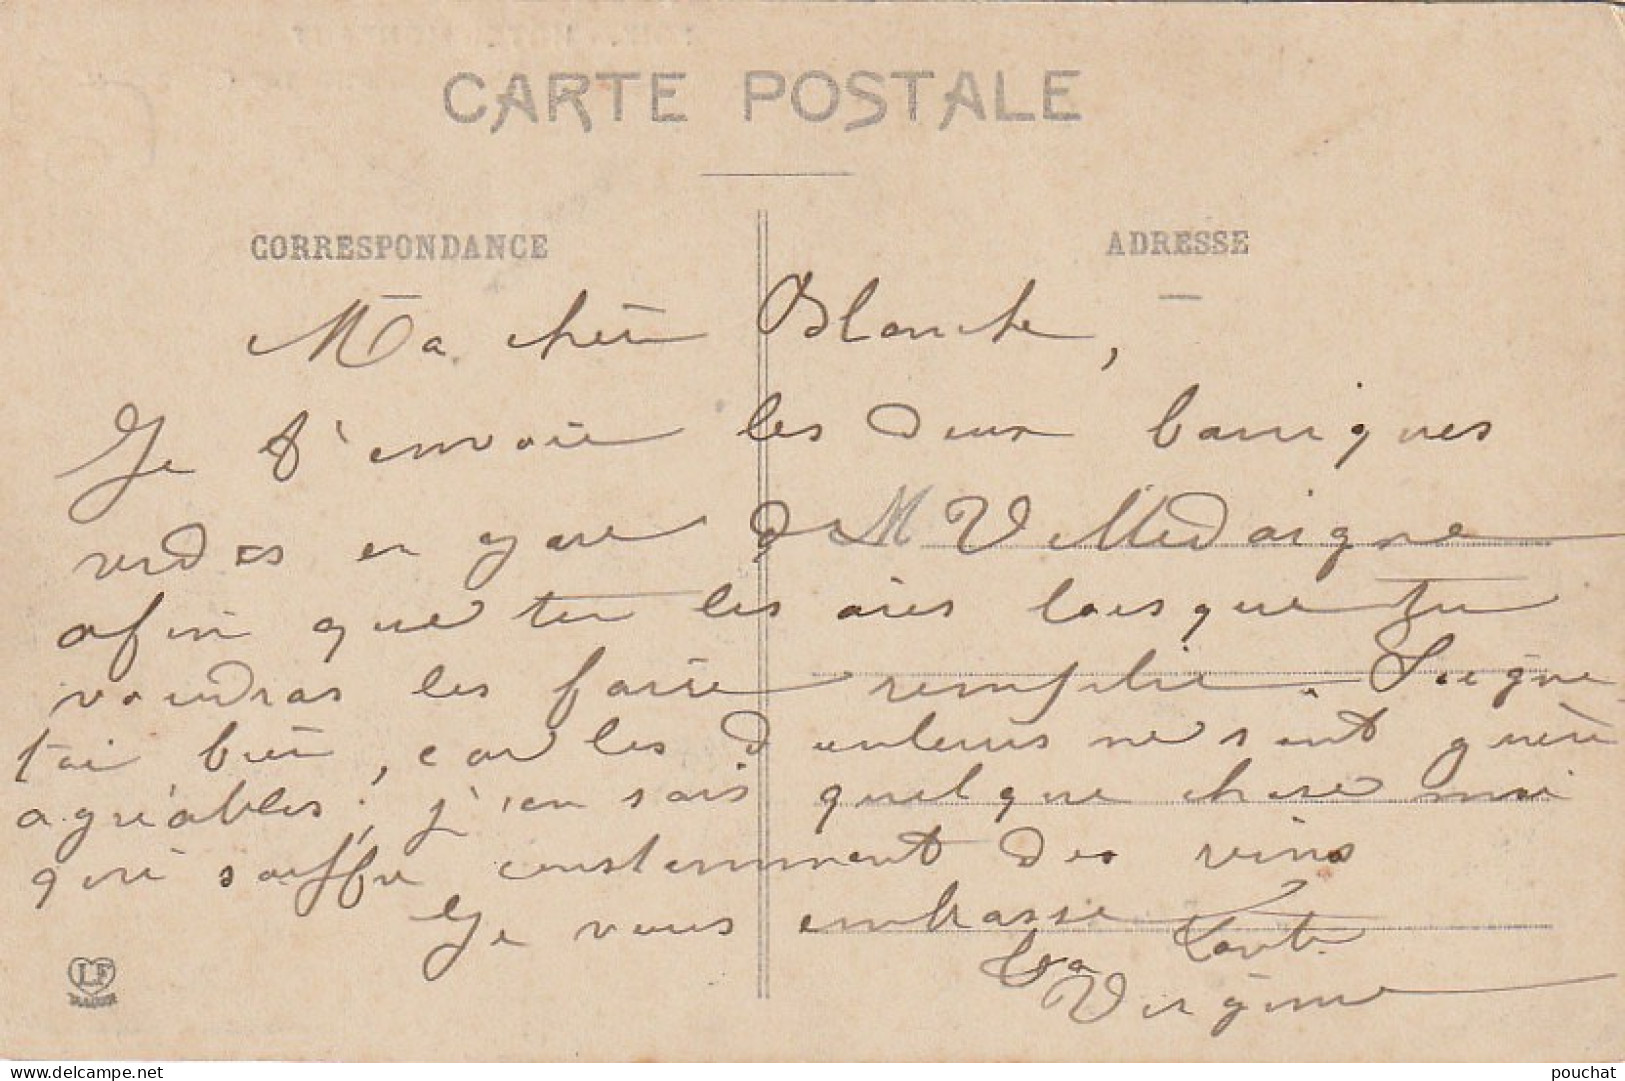 CARTE POSTALE
CORRESPONDANCE
ADRESSE
Ma chère Blanche,
Je t'envoie les deux barriques
vides en gare de M Villedaigne
afin que tu les aies lorsque tu
voudras les faire remplir. Soigne
t'ai bien, car les douleurs ne sont guère
agréables, j'en sais quelque chose moi
qui souffre constemment des reins
Je vous embrasse
Ta Tante
Virginie
LF
pouchat